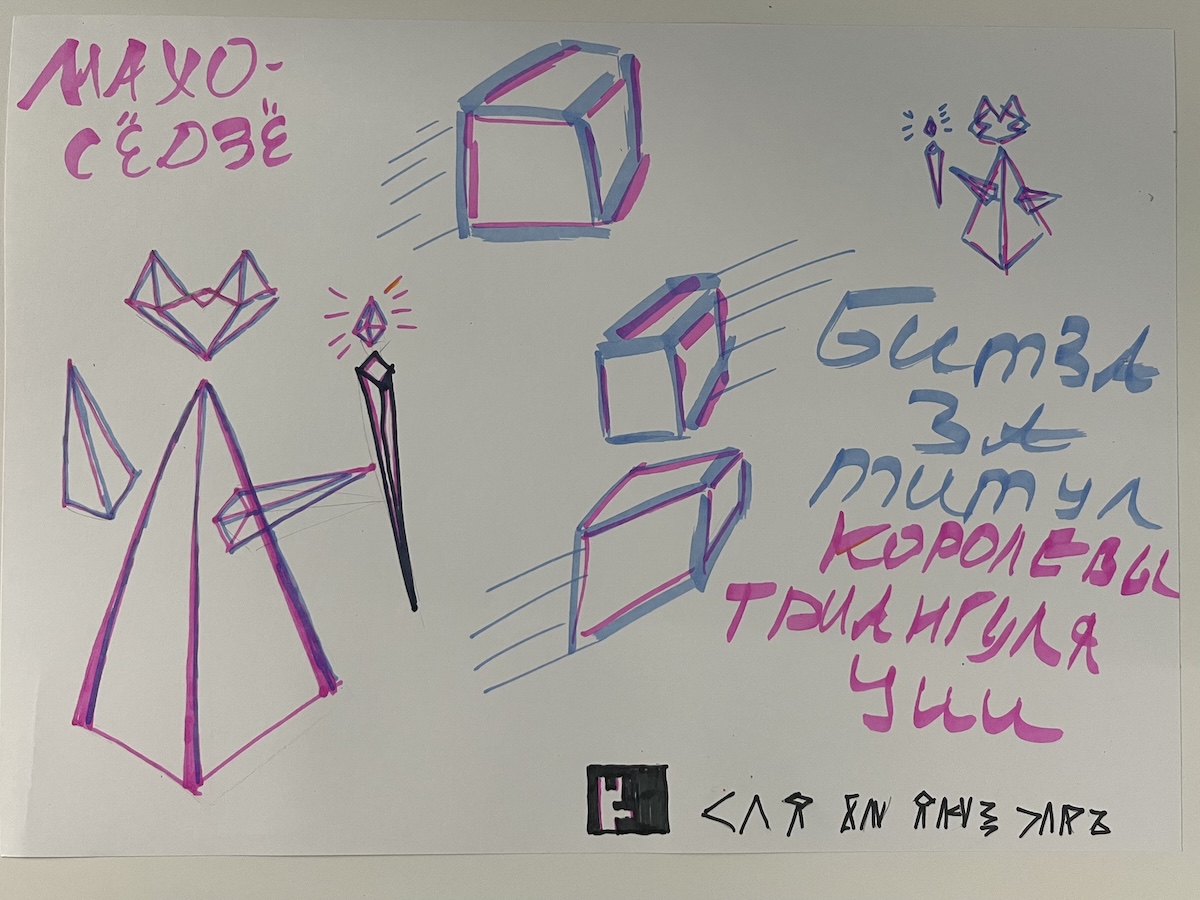 МАХО-
СЁДЗЁ
Битва
за
титул
КОРОЛЕВЫ
ТРИАНГУЛЯ
Ции